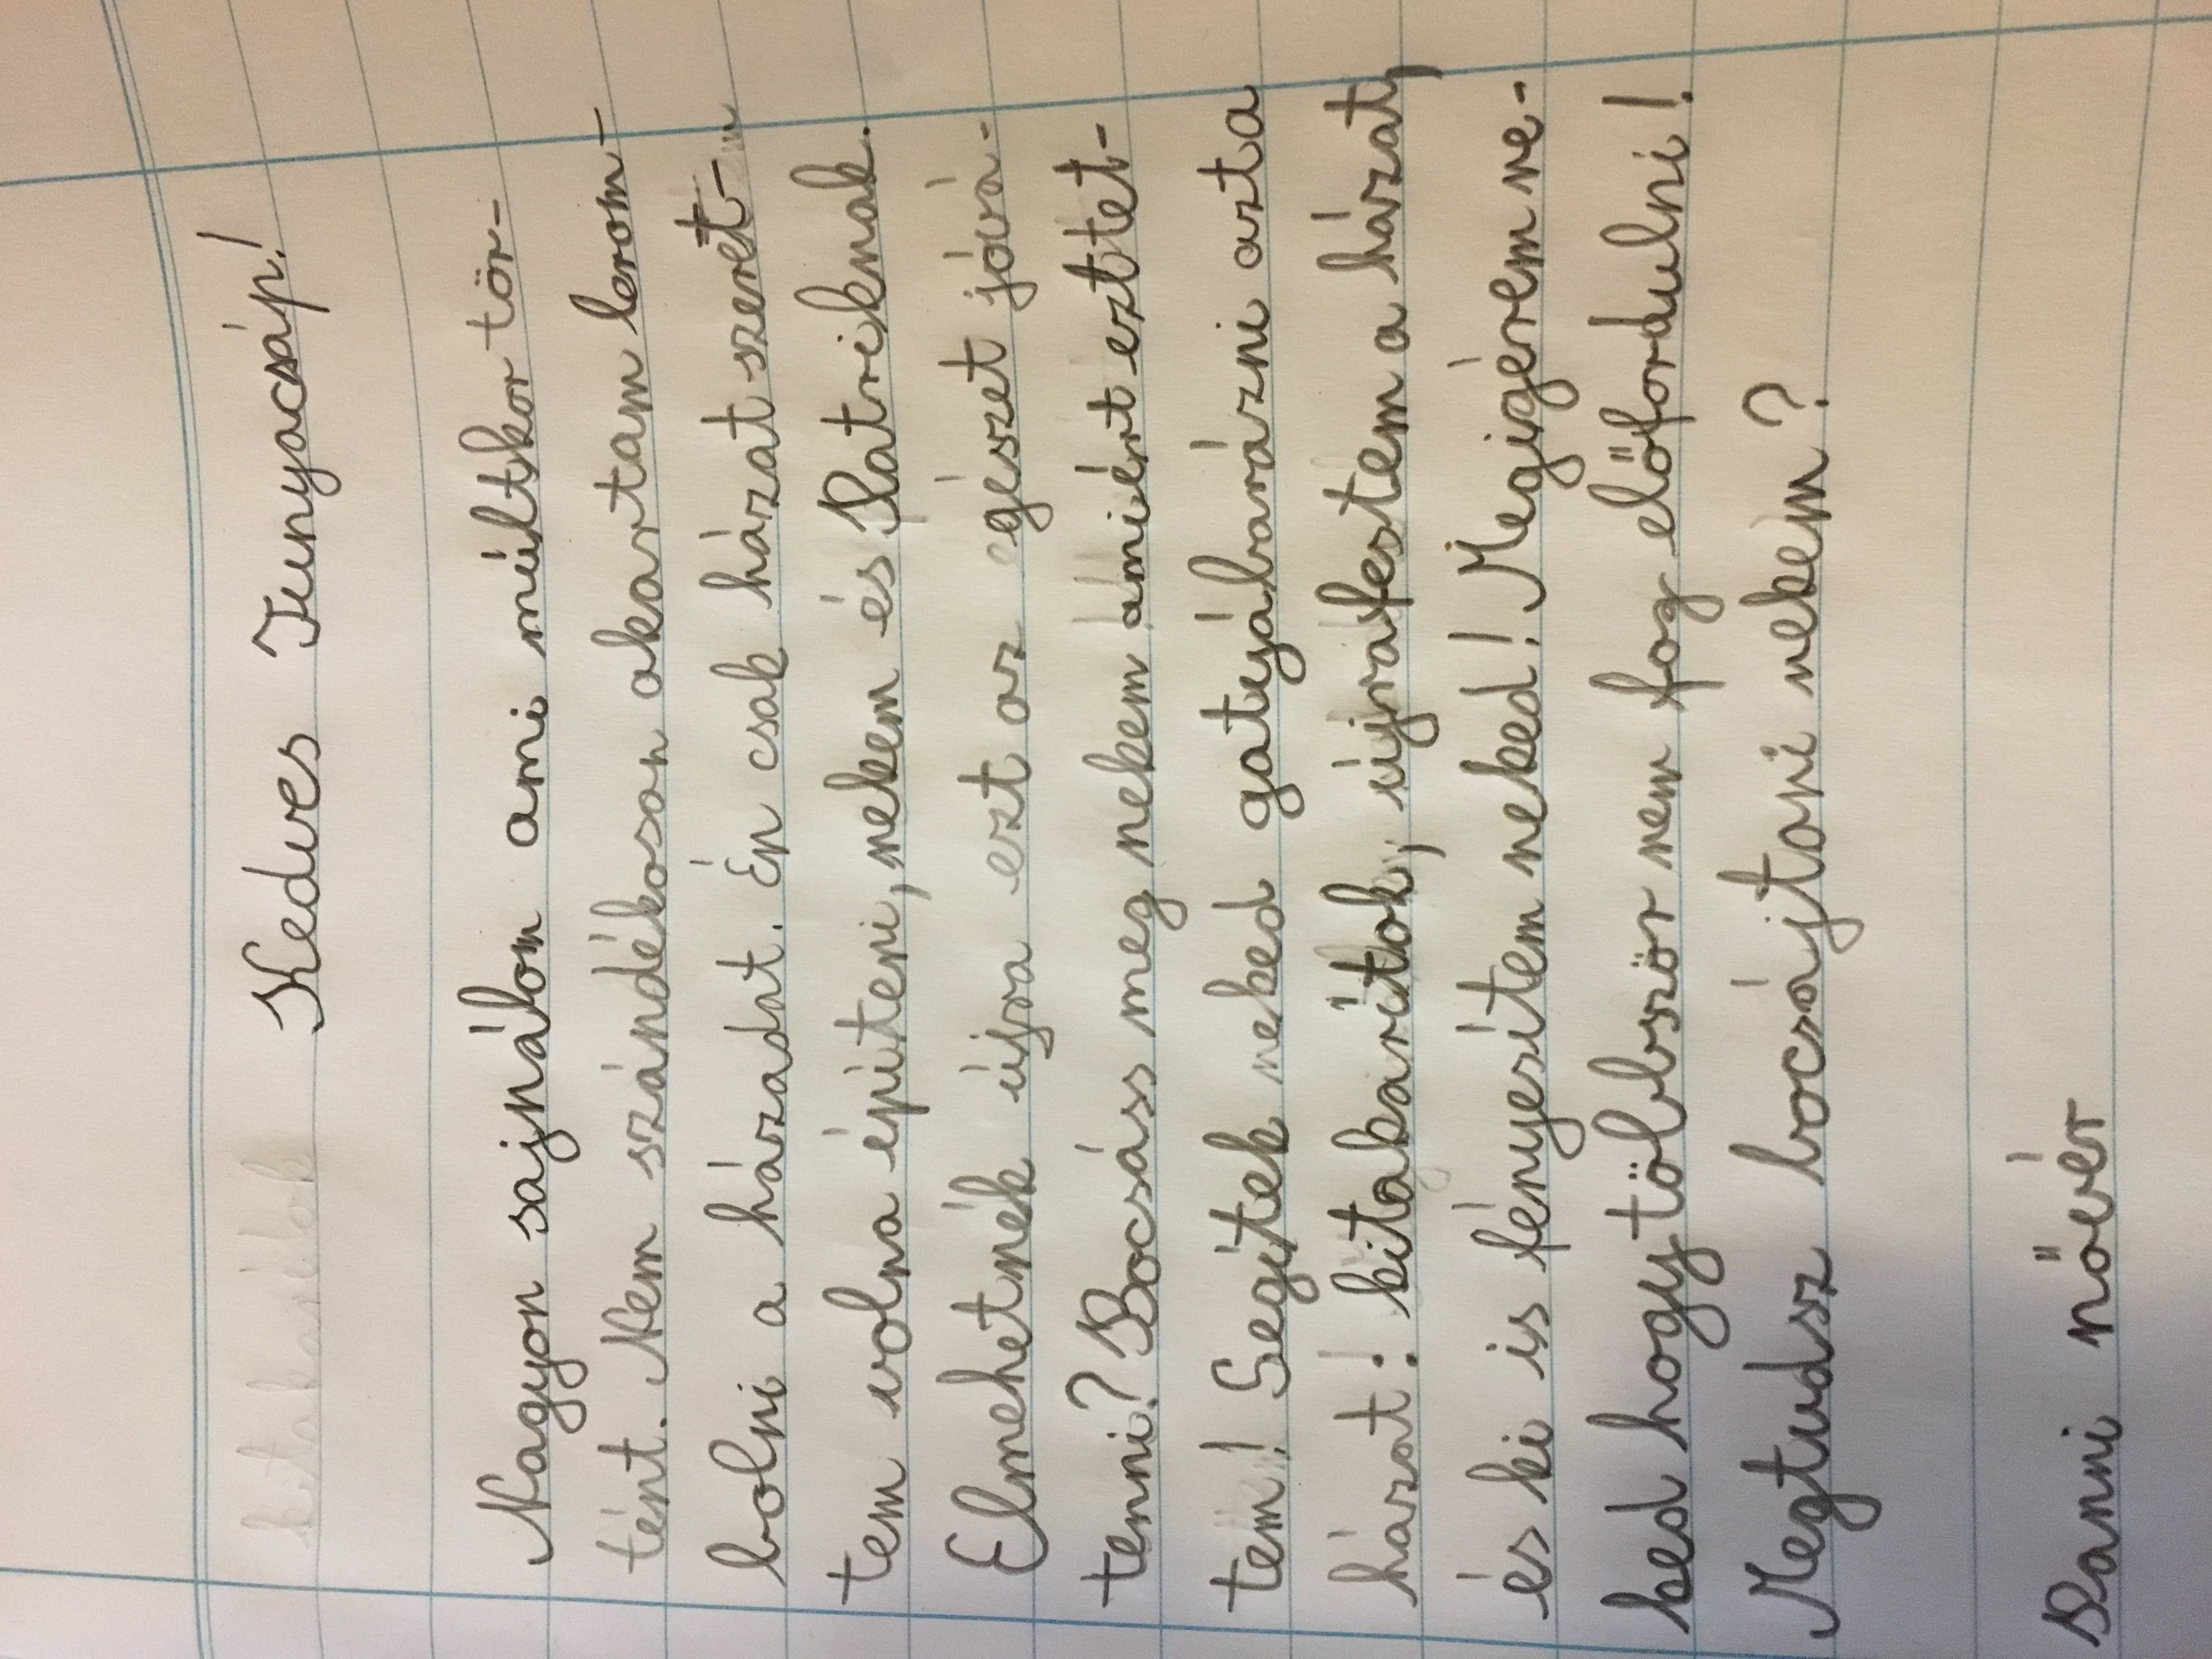 Kedves Tunyacsáp!
Nagyon sajnálom ami múltkor tör-
tént. Nem szándékosan akartam lerom-
bolni a házadat. Én csak házat szeret-
tem volna építeni, nekem és Patriknak.
Elmehetnék újra ezt az egészet jóvá-
tenni? Bocsáss meg nekem amiért eztet-
tem! Segítek neked gatyábarázni azt a
házat! kitakarítok, újráfestem a házat,
és ki is fényesítem neked! Megigérem ne-
ked hogy többször nem fog előfordulni!
Megtudsz bocsájtani nekem?
Panni nővér